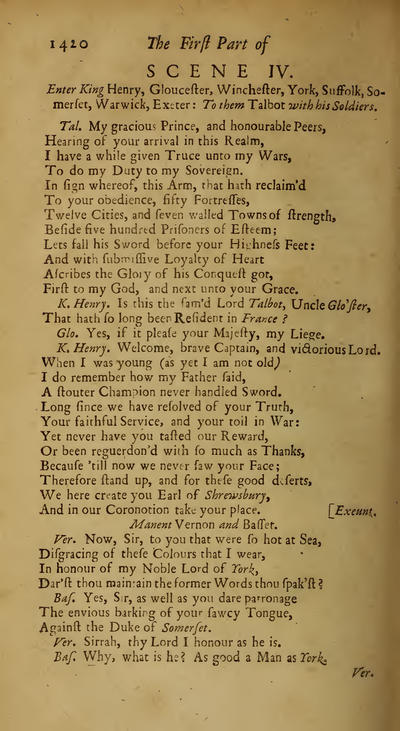 1420 The Firſt Part of
SCENE IV.
Enter King Henry, Glouceſter, Wincheſter, York, Suffolk, So-
merſet, Warwick, Exeter: To them Talbot with his Soldiers.
Tal. My gracious Prince, and honourable Peers,
Hearing of your arrival in this Realm,
I have a while given Truce unto my Wars,
To do my Duty to my Sovereign.
In ſign whereof, this Arm, that hath reclaim'd
To your obedience, fifty Fortreſſes,
Twelve Cities, and ſeven walled Towns of ſtrength,
Beſide five hundred Priſoners of Eſteem;
Lets fall his Sword before your Highneſs Feet:
And with ſubmiſſive Loyalty of Heart
Aſcribes the Glory of his Conqueſt got,
Firſt to my God, and next unto your Grace.
K. Henry. Is this the fam'd Lord Talbot, Uncle Glo'ſter,
That hath ſo long been Reſident in France ?
Glo. Yes, if it pleaſe your Majeſty, my Liege.
K. Henry. Welcome, brave Captain, and victorious Lord.
When I was young (as yet I am not old)
I do remember how my Father ſaid,
A ſtouter Champion never handled Sword.
Long ſince we have reſolved of your Truth,
Your faithful Service, and your toil in War:
Yet never have you taſted our Reward,
Or been reguerdon'd with ſo much as Thanks,
Becauſe 'till now we never ſaw your Face;
Therefore ſtand up, and for theſe good deſerts,
We here create you Earl of Shrewsbury,
And in our Coronotion take your place. [Exeunt.
Manent Vernon and Baſſet.
Ver. Now, Sir, to you that were ſo hot at Sea,
Diſgracing of theſe Colours that I wear,
In honour of my Noble Lord of York,
Dar'ſt thou maintain the former Words thou ſpak'ſt ?
Baſ. Yes, Sir, as well as you dare patronage
The envious barking of your ſawcy Tongue,
Againſt the Duke of Somerſet.
Ver. Sirrah, thy Lord I honour as he is.
Baſ. Why, what is he? As good a Man as York.
Ver.